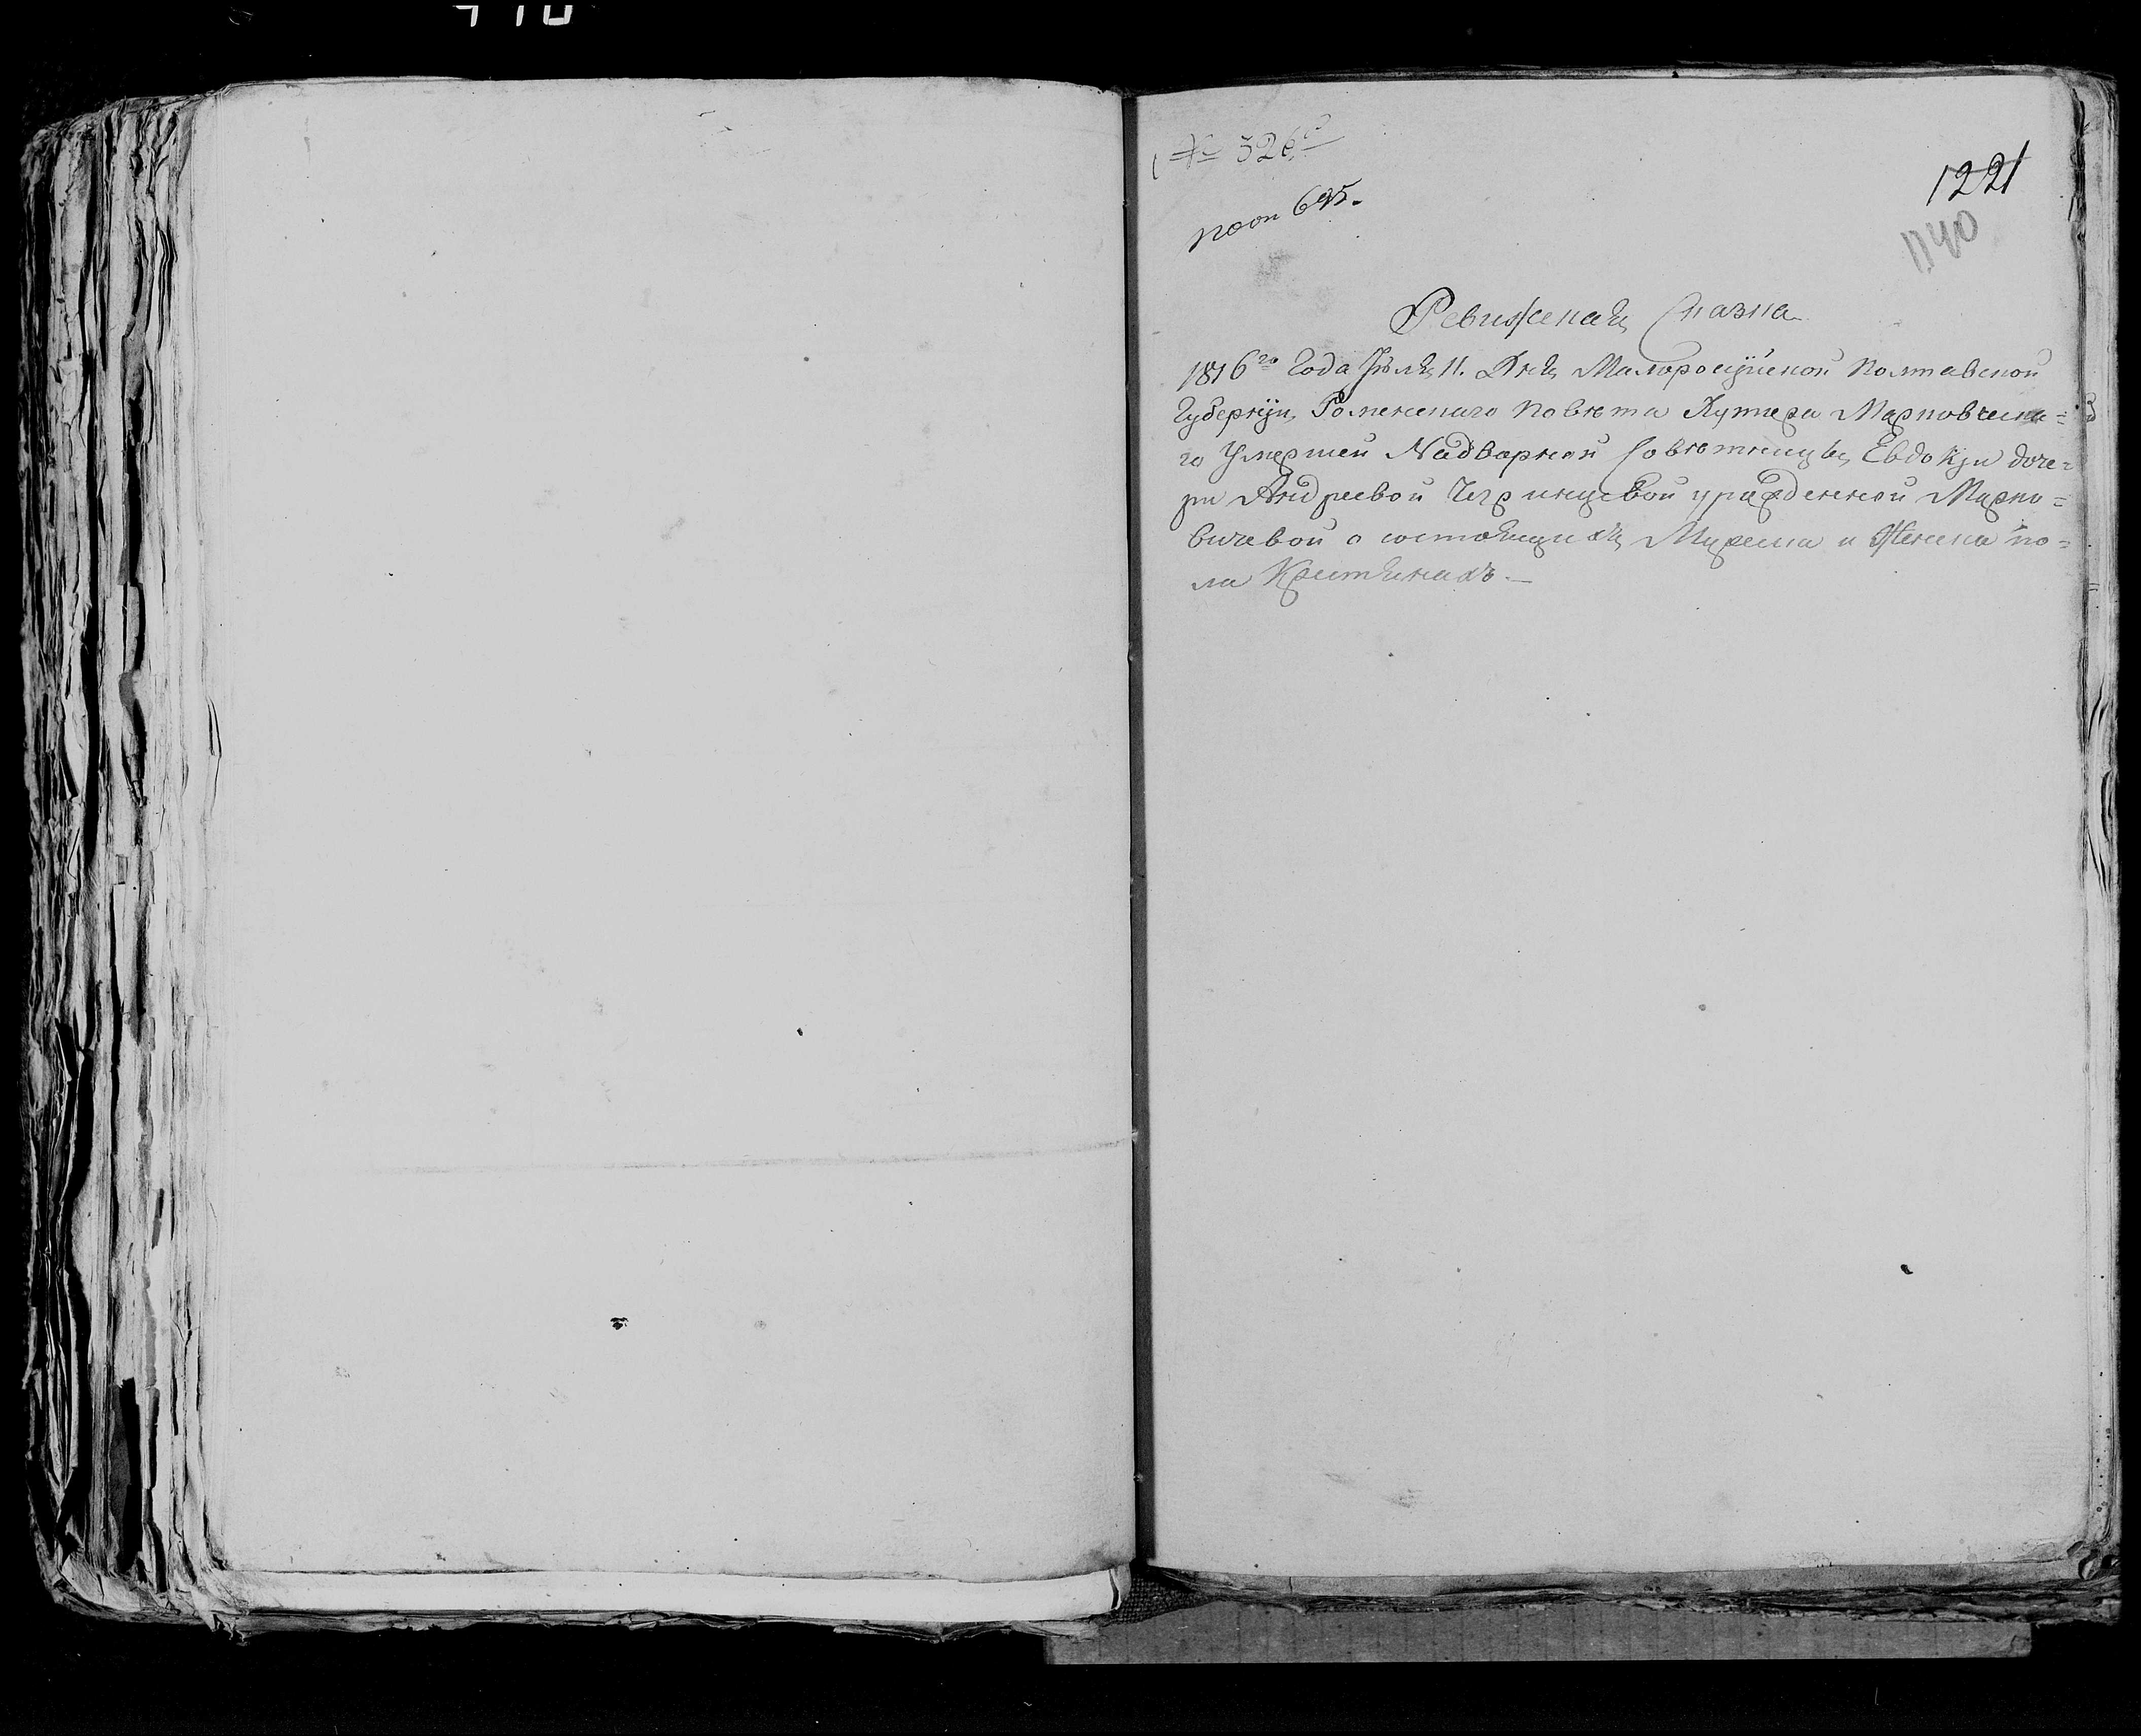 № 526
поои 695.
1221
1140
Ревижская Сказка
1816го Года Июля 11. Дня Малоросійской Полтавской
Губерніи, Роменскаго Повета Хутора Марковческа=
го Умершей Надворной Советницы Евдокіи доче=
ри Андреевой Чернцевой урожденной Марко=
вичевой о состоящихъ Мужеска и Женска по=
ла Крестянахъ.—